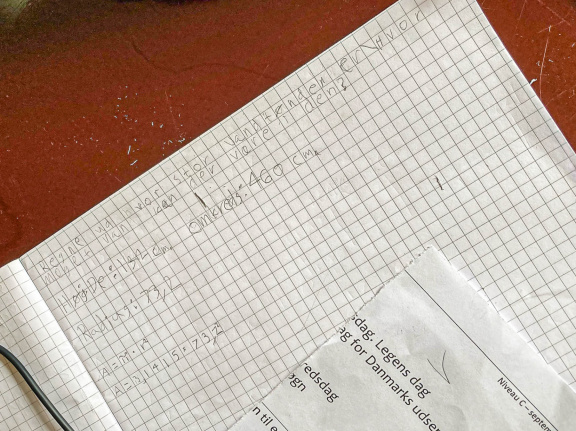 Regne ud hvor stor vandtanden er, hvor
meget vand kan der være i den?
Omkreds: 460 cm.
Højde: 132 cm.
Radius: 73,2
A = π · r²
A = 3,1415 · 73,2²
sdag. Legens dag
ag for Danmarks udsen
redsdag
ogn
n til e
Niveau C – septem